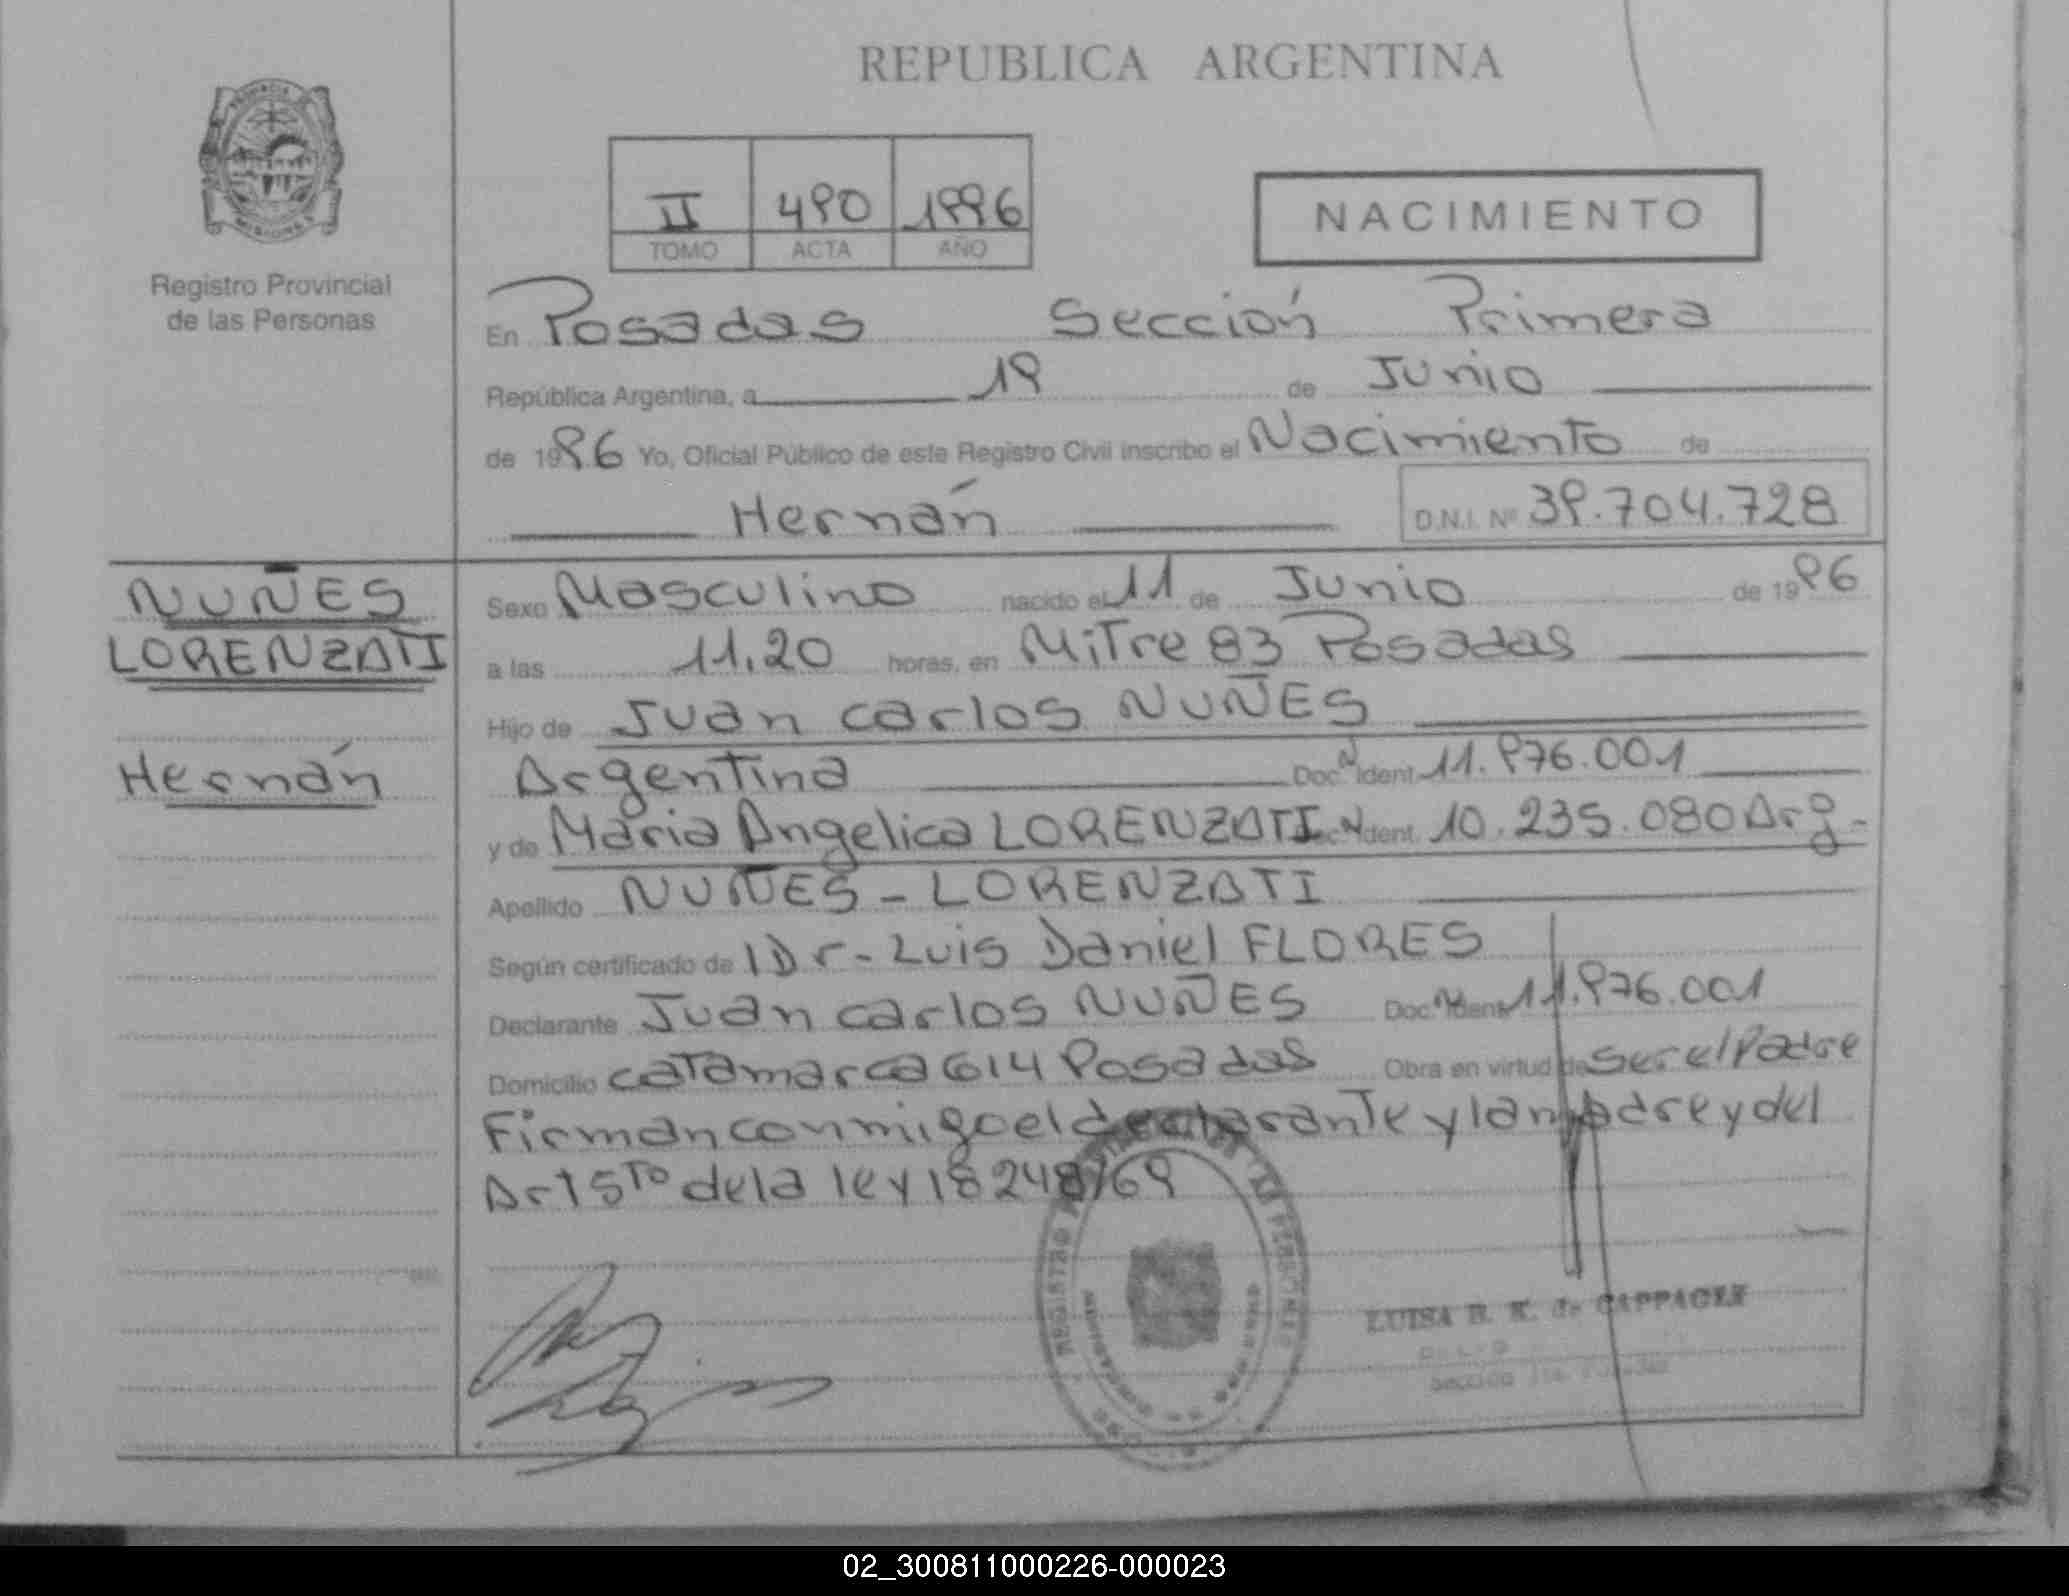 REPUBLICA ARGENTINA
Registro Provincial
de las Personas
II 490 1996
TOMO ACTA AÑO
NACIMIENTO
En Posadas Sección Primera
República Argentina, a 19 de Junio
de 1996 Yo, Oficial Público de este Registro Civil inscribo el Nacimiento de
Hernán
D.N.I. Nº 39.704.728
NUÑES
LORENZATI
Hernán
Sexo Masculino nacido el 11 de Junio de 1996
a las 11.20 horas, en Mitre 83 Posadas
Hijo de Juan Carlos NUÑES
Argentina Doc. Ident. 11.976.001
y de Maria Angelica LORENZATI Doc. Ident. 10.235.080 Arg-
Apellido NUÑES - LORENZATI
Según certificado de l Dr. Luis Daniel FLORES
Declarante Juan Carlos NUÑES Doc. Ident. 11.976.001
Domicilio Catamarca 614 Posadas Obra en virtud de ser el Padre
Firman conmigo el declarante y la madre y del
Art 5to de la ley 18248/69
LUISA B. K. de
02_300811000226-000023